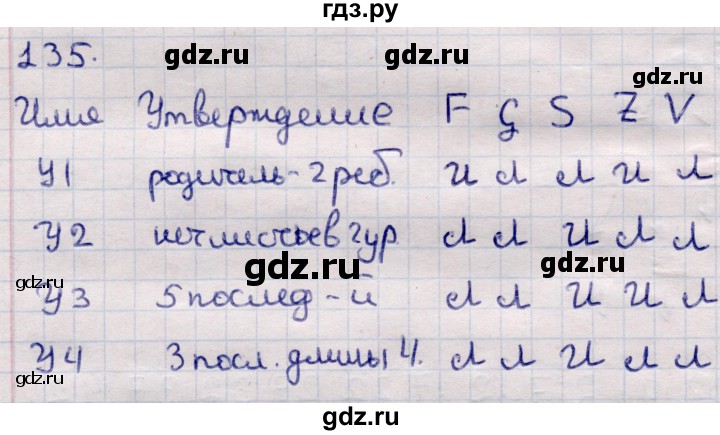 гдз.ру
135.
gdz.ru gdz.ru
gdz.ru
Имя Утверждение F G S Z V
У1 родитель - 2 реб. И Л Л И Л
У2 нет листьев 2 ур Л Л И Л Л
gdz.ru gdz.ru gdz.ru
У3 5 послед - й Л Л И И Л
У4 3 посл. длины 4. Л Л И Л Л
gdz.ru gdz.ru
gdz.ru gdz.ru